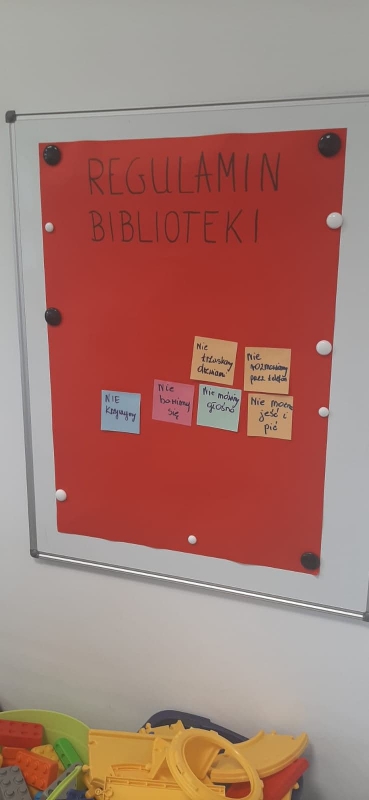 REGULAMIN
BIBLIOTEKI
Nie
trzaskamy
drzwiami
Nie
rozmawiamy
przez telefon
NIE
krzyczymy
Nie
bawimy
się
Nie mówimy
głośno
Nie można
jeść i
pić